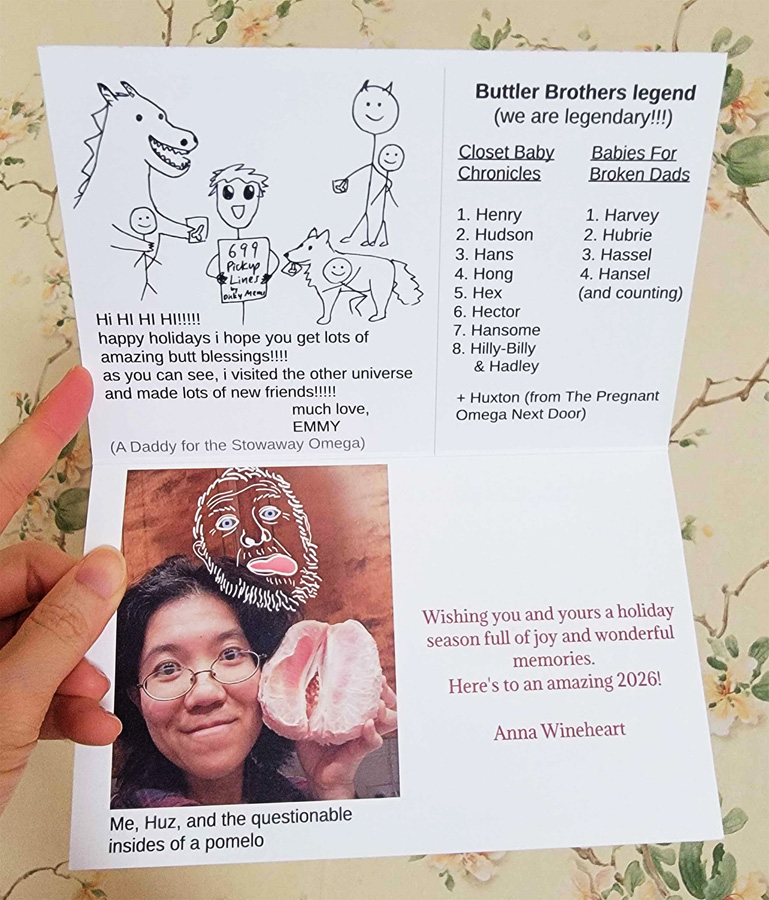 699
Pickup
Lines
by
Dicky Memo
Hi HI HI HI!!!!!
happy holidays i hope you get lots of
amazing butt blessings!!!!
as you can see, i visited the other universe
and made lots of new friends!!!!!
much love,
EMMY
(A Daddy for the Stowaway Omega)
Buttler Brothers legend
(we are legendary!!!)
Closet Baby
Chronicles
1. Henry
2. Hudson
3. Hans
4. Hong
5. Hex
6. Hector
7. Hansome
8. Hilly-Billy
& Hadley
Babies For
Broken Dads
1. Harvey
2. Hubrie
3. Hassel
4. Hansel
(and counting)
+ Huxton (from The Pregnant
Omega Next Door)
Me, Huz, and the questionable
insides of a pomelo
Wishing you and yours a holiday
season full of joy and wonderful
memories.
Here's to an amazing 2026!
Anna Wineheart